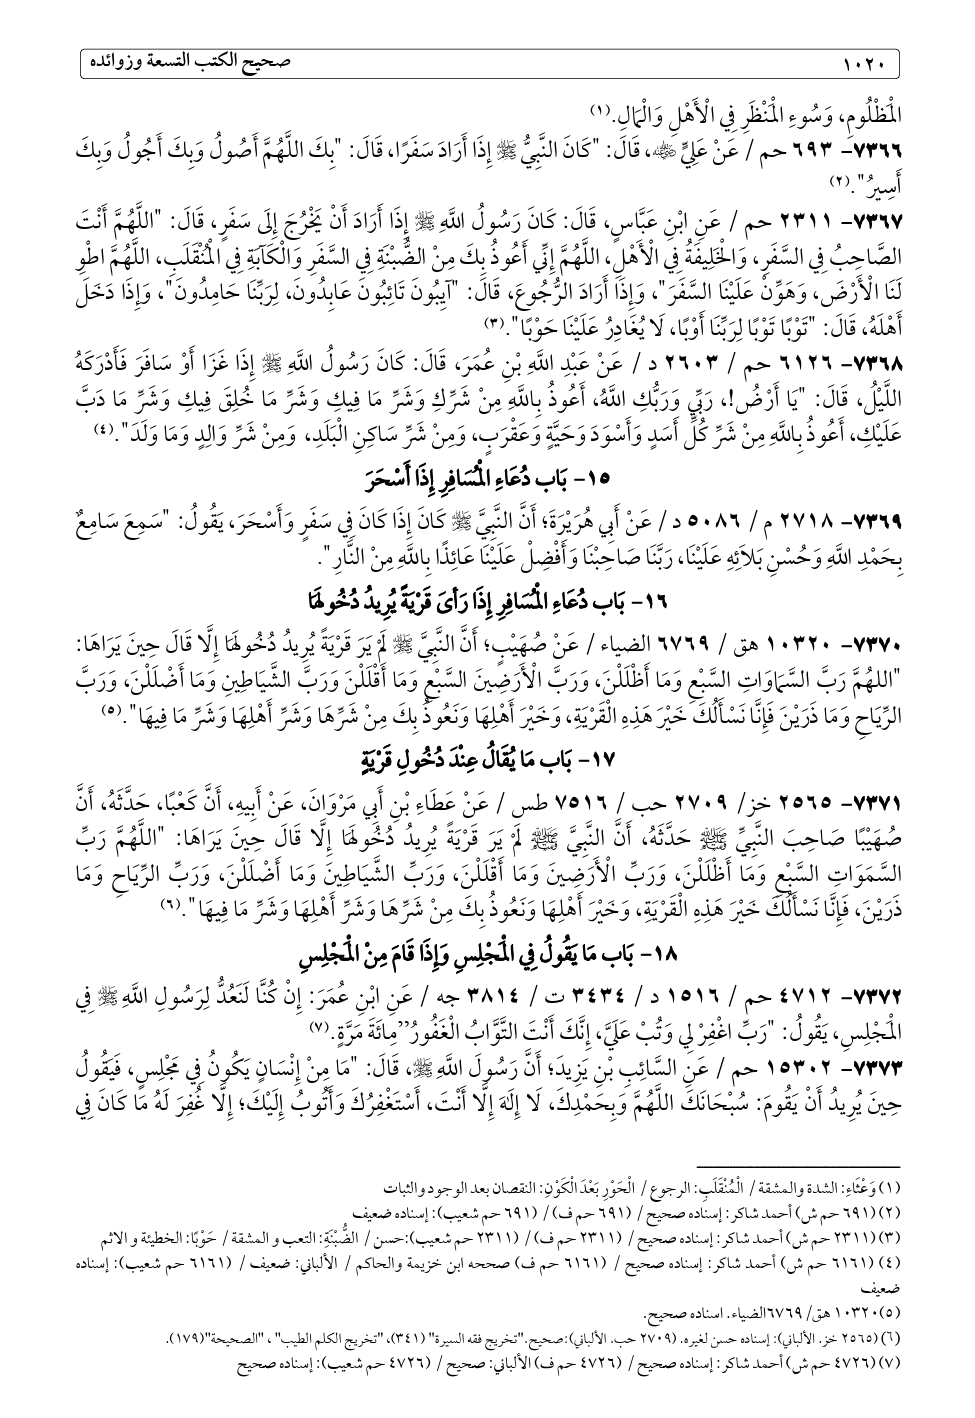 ١٠٢٠ صحيح الكتب التسعة وزوائده
الْمَظْلُومِ، وَسُوءِ الْمَنْظَرِ فِي الْأَهْلِ وَالْمَالِ.(١)
٧٣٦٦- ٦٩٣ حم / عَنْ عَلِيٍّ ﵁، قَالَ: "كَانَ النَّبِيُّ ﷺ إِذَا أَرَادَ سَفَرًا، قَالَ: "بِكَ اللَّهُمَّ أَصُولُ وَبِكَ أَجُولُ وَبِكَ
أَسِيرُ".(٢)
٧٣٦٧- ٢٣١١ حم / عَنِ ابْنِ عَبَّاسٍ، قَالَ: كَانَ رَسُولُ اللَّهِ ﷺ إِذَا أَرَادَ أَنْ يَخْرُجَ إِلَى سَفَرٍ، قَالَ: "اللَّهُمَّ أَنْتَ
الصَّاحِبُ فِي السَّفَرِ، وَالْخَلِيفَةُ فِي الْأَهْلِ، اللَّهُمَّ إِنِّي أَعُوذُ بِكَ مِنْ الضُّبْنَةِ فِي السَّفَرِ وَالْكَآبَةِ فِي الْمُنْقَلَبِ، اللَّهُمَّ اطْوِ
لَنَا الْأَرْضَ، وَهَوِّنْ عَلَيْنَا السَّفَرَ"، وَإِذَا أَرَادَ الرُّجُوعَ، قَالَ: "آيِبُونَ تَائِبُونَ عَابِدُونَ، لِرَبِّنَا حَامِدُونَ"، وَإِذَا دَخَلَ
أَهْلَهُ، قَالَ: "تَوْبًا تَوْبًا لِرَبِّنَا أَوْبًا، لَا يُغَادِرُ عَلَيْنَا حَوْبًا".(٣)
٧٣٦٨- ٦١٢٦ حم / ٢٦٠٣ د / عَنْ عَبْدِ اللَّهِ بْنِ عُمَرَ، قَالَ: كَانَ رَسُولُ اللَّهِ ﷺ إِذَا غَزَا أَوْ سَافَرَ فَأَدْرَكَهُ
اللَّيْلُ، قَالَ: "يَا أَرْضُ!، رَبِّي وَرَبُّكِ اللَّهُ، أَعُوذُ بِاللَّهِ مِنْ شَرِّكِ وَشَرِّ مَا فِيكِ وَشَرِّ مَا خُلِقَ فِيكِ وَشَرِّ مَا دَبَّ
عَلَيْكِ، أَعُوذُ بِاللَّهِ مِنْ شَرِّ كُلِّ أَسَدٍ وَأَسْوَدَ وَحَيَّةٍ وَعَقْرَبٍ، وَمِنْ شَرِّ سَاكِنِ الْبَلَدِ، وَمِنْ شَرِّ وَالِدٍ وَمَا وَلَدَ".(٤)
١٥- بَاب دُعَاءِ الْمُسَافِرِ إِذَا أَسْحَرَ
٧٣٦٩- ٢٧١٨ م / ٥٠٨٦ د / عَنْ أَبِي هُرَيْرَةَ؛ أَنَّ النَّبِيَّ ﷺ كَانَ إِذَا كَانَ فِي سَفَرٍ وَأَسْحَرَ، يَقُولُ: "سَمِعَ سَامِعٌ
بِحَمْدِ اللَّهِ وَحُسْنِ بَلاَئِهِ عَلَيْنَا، رَبَّنَا صَاحِبْنَا وَأَفْضِلْ عَلَيْنَا عَائِذًا بِاللَّهِ مِنْ النَّارِ".
١٦- بَاب دُعَاءِ الْمُسَافِرِ إِذَا رَأَى قَرْيَةً يُرِيدُ دُخُولَهَا
٧٣٧٠- ١٠٣٢٠ هق / ٦٧٦٩ الضياء / عَنْ صُهَيْبٍ؛ أَنَّ النَّبِيَّ ﷺ لَمْ يَرَ قَرْيَةً يُرِيدُ دُخُولَهَا إِلَّا قَالَ حِينَ يَرَاهَا:
"اللهُمَّ رَبَّ السَّمَاوَاتِ السَّبْعِ وَمَا أَظْلَلْنَ، وَرَبَّ الْأَرَضِينَ السَّبْعِ وَمَا أَقْلَلْنَ وَرَبَّ الشَّيَاطِينِ وَمَا أَضْلَلْنَ، وَرَبَّ
الرِّيَاحِ وَمَا ذَرَيْنَ فَإِنَّا نَسْأَلُكَ خَيْرَ هَذِهِ الْقَرْيَةِ، وَخَيْرَ أَهْلِهَا وَنَعُوذُ بِكَ مِنْ شَرِّهَا وَشَرِّ أَهْلِهَا وَشَرِّ مَا فِيهَا".(٥)
١٧- بَاب مَا يُقَالُ عِنْدَ دُخُولِ قَرْيَةٍ
٧٣٧١- ٢٥٦٥ خز/ ٢٧٠٩ حب / ٧٥١٦ طس / عَنْ عَطَاءِ بْنِ أَبِي مَرْوَانَ، عَنْ أَبِيهِ، أَنَّ كَعْبًا، حَدَّثَهُ، أَنَّ
صُهَيْبًا صَاحِبَ النَّبِيِّ ﷺ حَدَّثَهُ، أَنَّ النَّبِيَّ ﷺ لَمْ يَرَ قَرْيَةً يُرِيدُ دُخُولَهَا إِلَّا قَالَ حِينَ يَرَاهَا: "اللَّهُمَّ رَبِّ
السَّمَوَاتِ السَّبْعِ وَمَا أَظْلَلْنَ، وَرَبِّ الْأَرَضِينَ وَمَا أَقْلَلْنَ، وَرَبِّ الشَّيَاطِينَ وَمَا أَضْلَلْنَ، وَرَبِّ الرِّيَاحِ وَمَا
ذَرَيْنَ، فَإِنَّا نَسْأَلُكَ خَيْرَ هَذِهِ الْقَرْيَةِ، وَخَيْرَ أَهْلِهَا وَنَعُوذُ بِكَ مِنْ شَرِّهَا وَشَرِّ أَهْلِهَا وَشَرِّ مَا فِيهَا".(٦)
١٨- بَاب مَا يَقُولُ فِي الْمَجْلِسِ وَإِذَا قَامَ مِنْ الْمَجْلِسِ
٧٣٧٢- ٤٧١٢ حم / ١٥١٦ د / ٣٤٣٤ ت / ٣٨١٤ جه / عَنِ ابْنِ عُمَرَ: إِنْ كُنَّا لَنَعُدُّ لِرَسُولِ اللَّهِ ﷺ فِي
الْمَجْلِسِ، يَقُولُ: "رَبِّ اغْفِرْ لِي وَتُبْ عَلَيَّ، إِنَّكَ أَنْتَ التَّوَّابُ الْغَفُورُ"مِائَةَ مَرَّةٍ.(٧)
٧٣٧٣- ١٥٣٠٢ حم / عَنِ السَّائِبِ بْنِ يَزِيدَ؛ أَنَّ رَسُولَ اللَّهِ ﷺ، قَالَ: "مَا مِنْ إِنْسَانٍ يَكُونُ فِي مَجْلِسٍ، فَيَقُولُ
حِينَ يُرِيدُ أَنْ يَقُومَ: سُبْحَانَكَ اللَّهُمَّ وَبِحَمْدِكَ، لَا إِلَهَ إِلَّا أَنْتَ، أَسْتَغْفِرُكَ وَأَتُوبُ إِلَيْكَ؛ إِلَّا غُفِرَ لَهُ مَا كَانَ فِي
(١) وَعْثَاءِ: الشدة والمشقة / الْمُنْقَلَبِ: الرجوع / الْحَوْرِ بَعْدَ الْكَوْنِ: النقصان بعد الوجود والثبات
(٢) (٦٩١ حم ش) أحمد شاكر: إسناده صحيح / (٦٩١ حم ف) / (٦٩١ حم شعيب): إسناده ضعيف
(٣) (٢٣١١ حم ش) أحمد شاكر: إسناده صحيح / (٢٣١١ حم ف) / (٢٣١١ حم شعيب):حسن / الضُّبْنَةِ: التعب و المشقة / حَوْبًا: الخطيئة و الاثم
(٤) (٦١٦١ حم ش) أحمد شاكر: إسناده صحيح / (٦١٦١ حم ف) صححه ابن خزيمة والحاكم / الألباني: ضعيف / (٦١٦١ حم شعيب): إسناده
ضعيف
(٥)١٠٣٢٠ هق/ ٦٧٦٩الضياء. اسناده صحيح.
(٦) (٢٥٦٥ خز. الألباني): إسناده حسن لغيره. (٢٧٠٩ حب. الألباني):صحيح."تخريج فقه السيرة" (٣٤١)، "تخريج الكلم الطيب" ، "الصحيحة"(١٧٩).
(٧) (٤٧٢٦ حم ش) أحمد شاكر: إسناده صحيح / (٤٧٢٦ حم ف) الألباني: صحيح / (٤٧٢٦ حم شعيب): إسناده صحيح